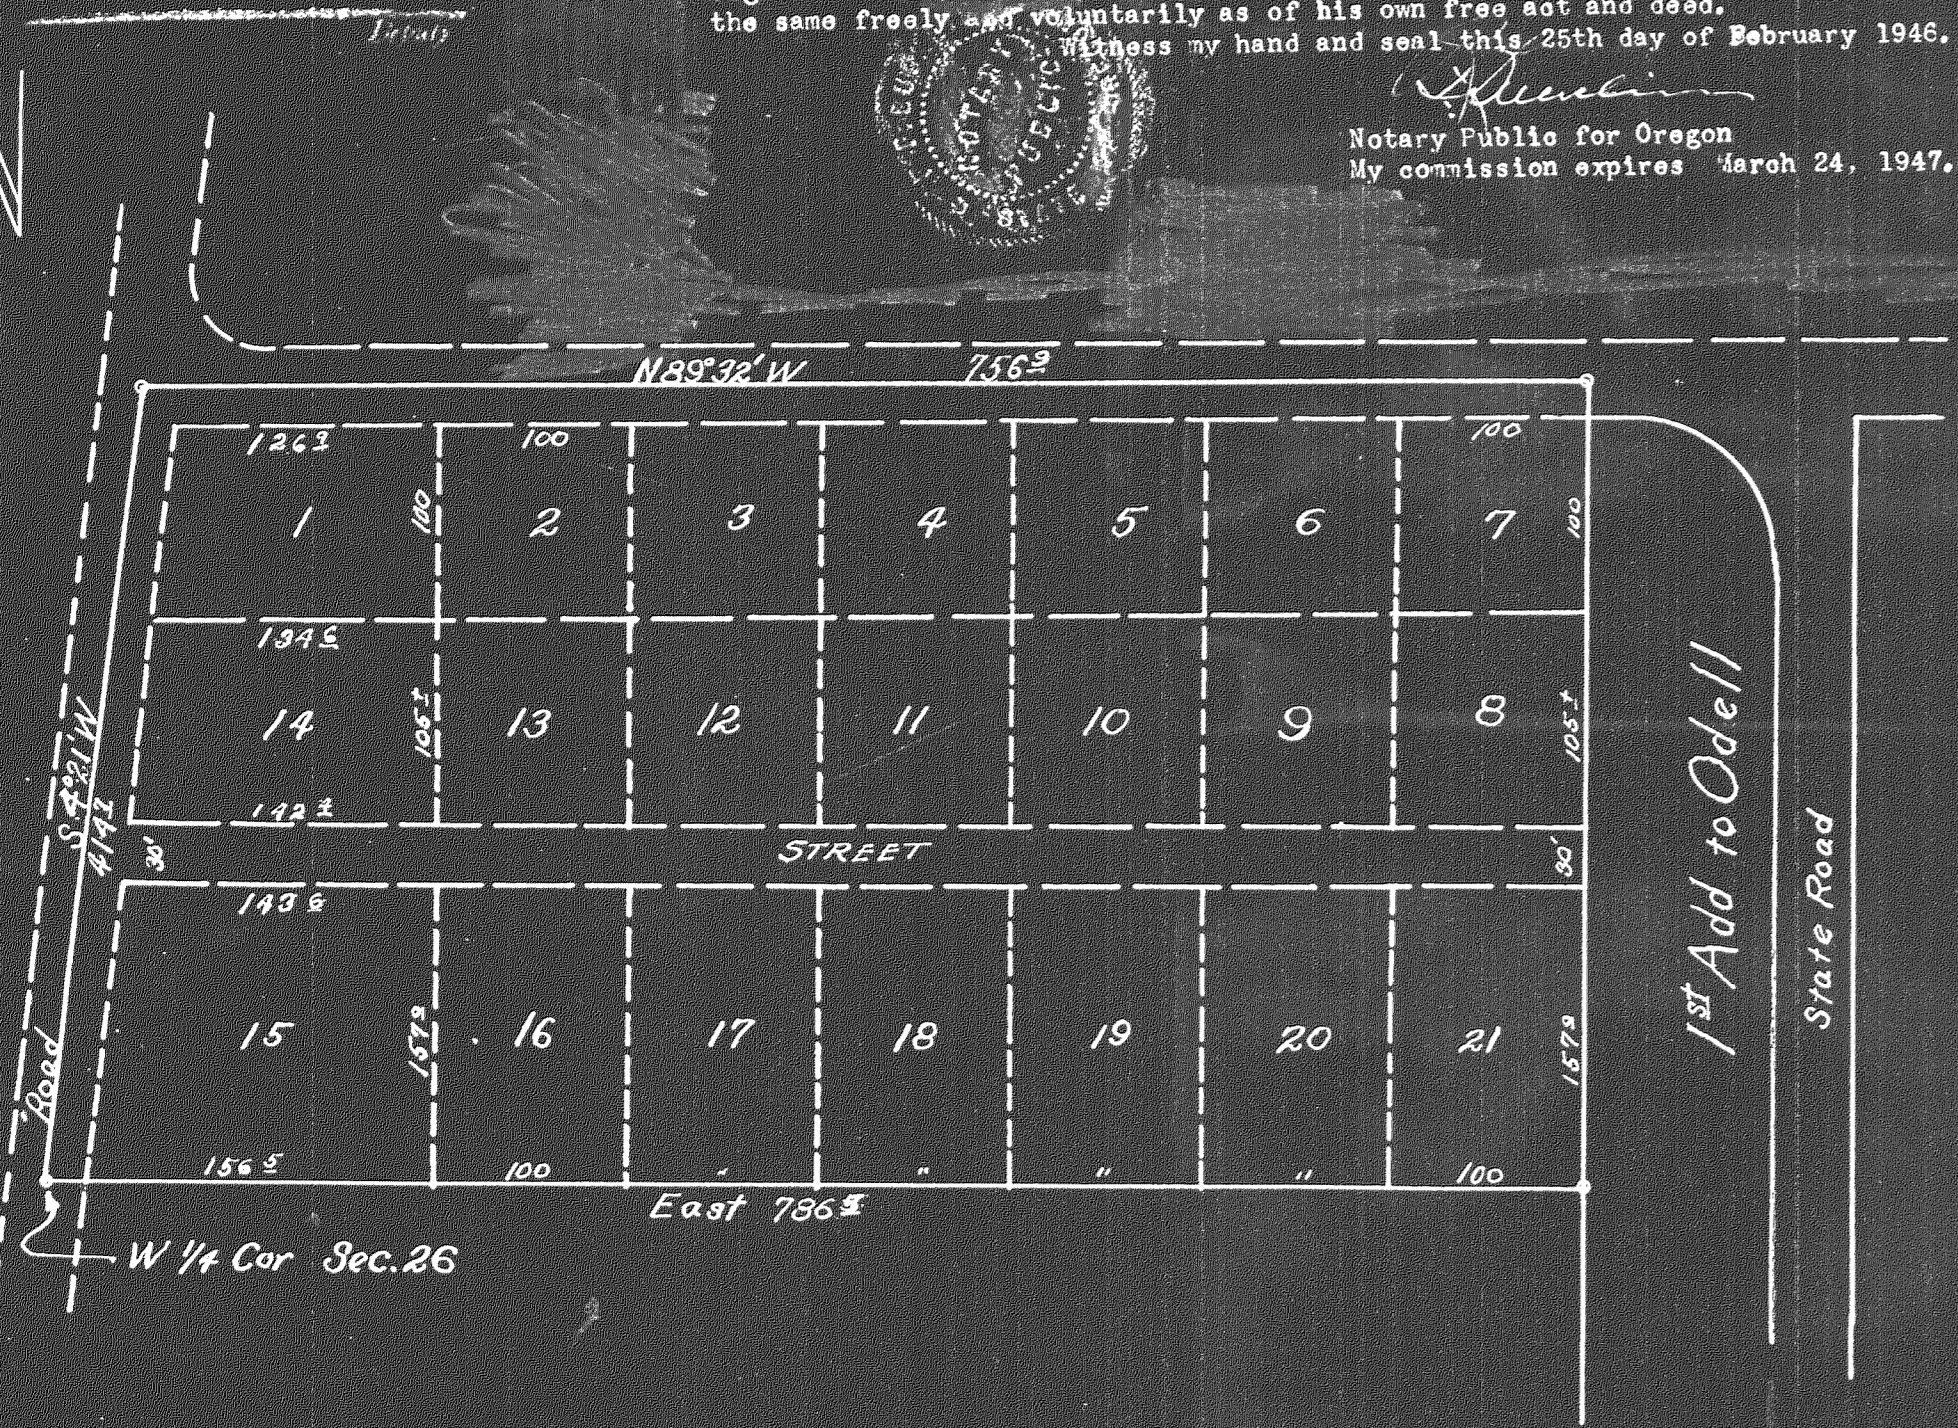 the same freely and voluntarily as of his own free act and deed.
Witness my hand and seal this 25th day of February 1946.
NOTARY
Notary Public for Oregon
My commission expires March 24, 1947.
N89°32'W 756.9
126.9 100 100
1 100 2 3 4 5 6 7 100
134.6
14 105.+ 13 12 11 10 9 8 105.+
142.4
S.4°21'W
414.2
30' STREET 30'
143.6
15 157.9 16 17 18 19 20 21 157.9
156.5 100 " " " " 100
East 786.5
Road
W 1/4 Cor Sec. 26
1st Add to Odell
State Road